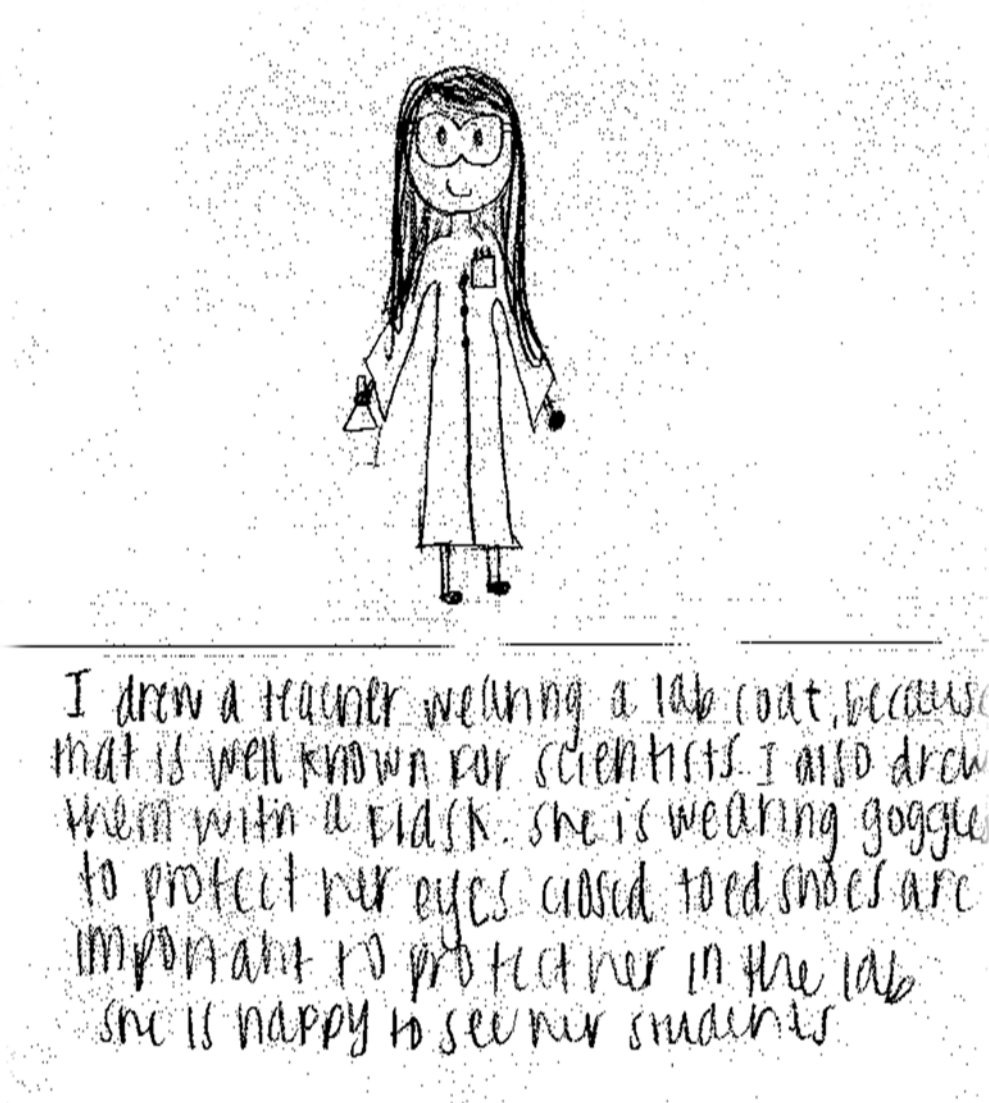 I drew a teacher wearing a lab coat, because
that is well known for scientists. I also drew
them with a flask. she is wearing goggles
to protect her eyes closed toed shoes are
important to protect her in the lab
she is happy to see her students